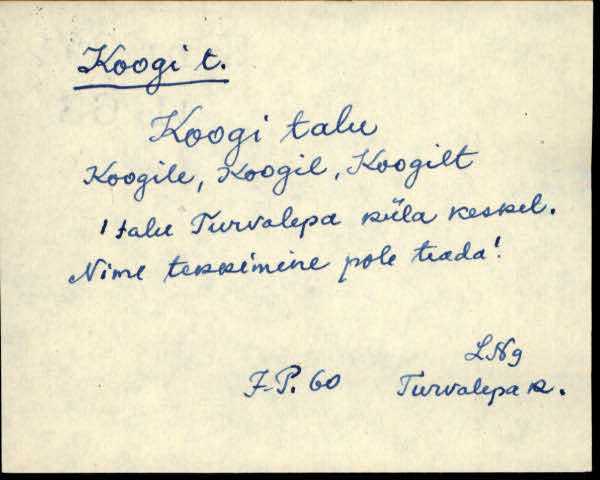 Koogi t.
Koogi talu
Koogile, Koogil, Koogilt
1 talu Turvalepa küla keskel.
Nime tekkimine pole teada!
LNg
J.P. 60 Turvalepa k.